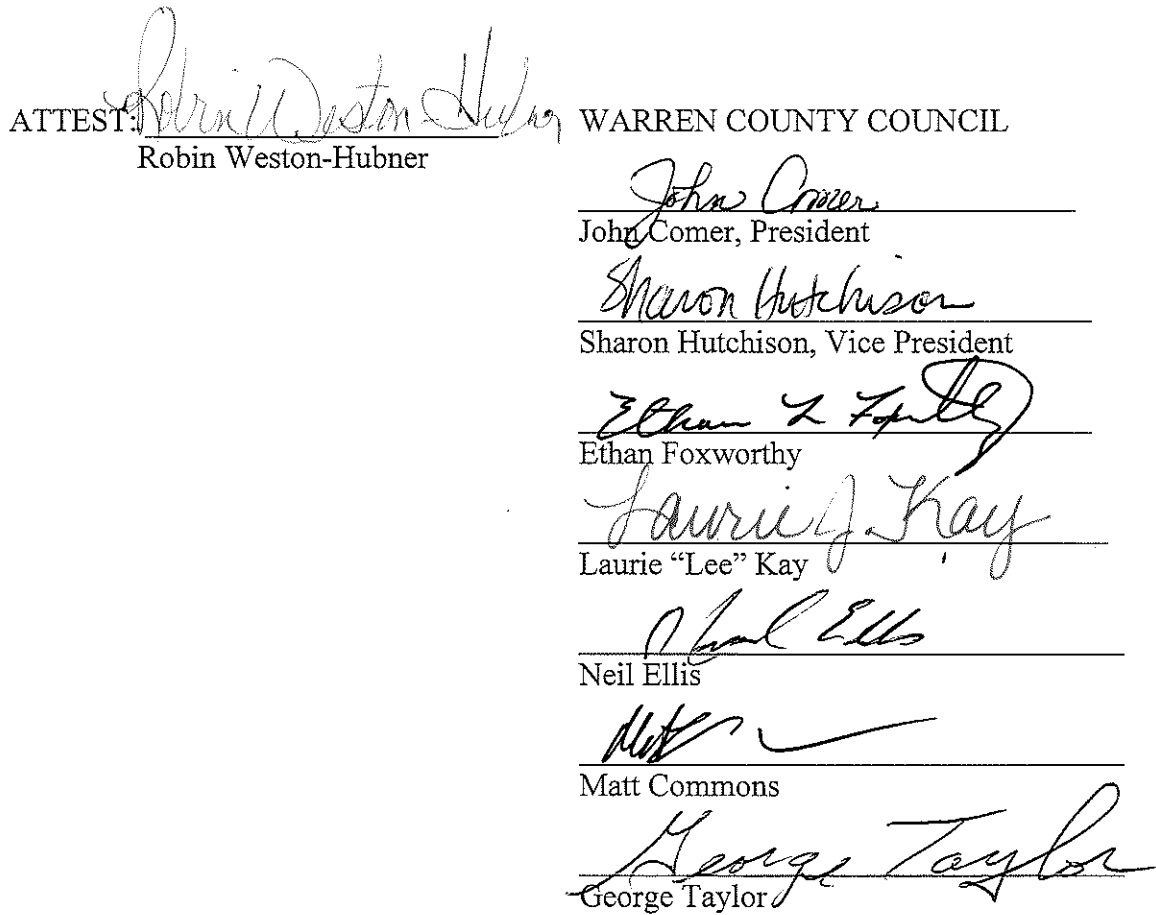 ATTEST: Robin Weston-Hubner WARREN COUNTY COUNCIL
Robin Weston-Hubner
John Comer
John Comer, President
Sharon Hutchison
Sharon Hutchison, Vice President
Ethan L Foxworthy
Ethan Foxworthy
Laurie J. Kay
Laurie “Lee” Kay
Ellis
Neil Ellis
Matt
Matt Commons
George Taylor
George Taylor